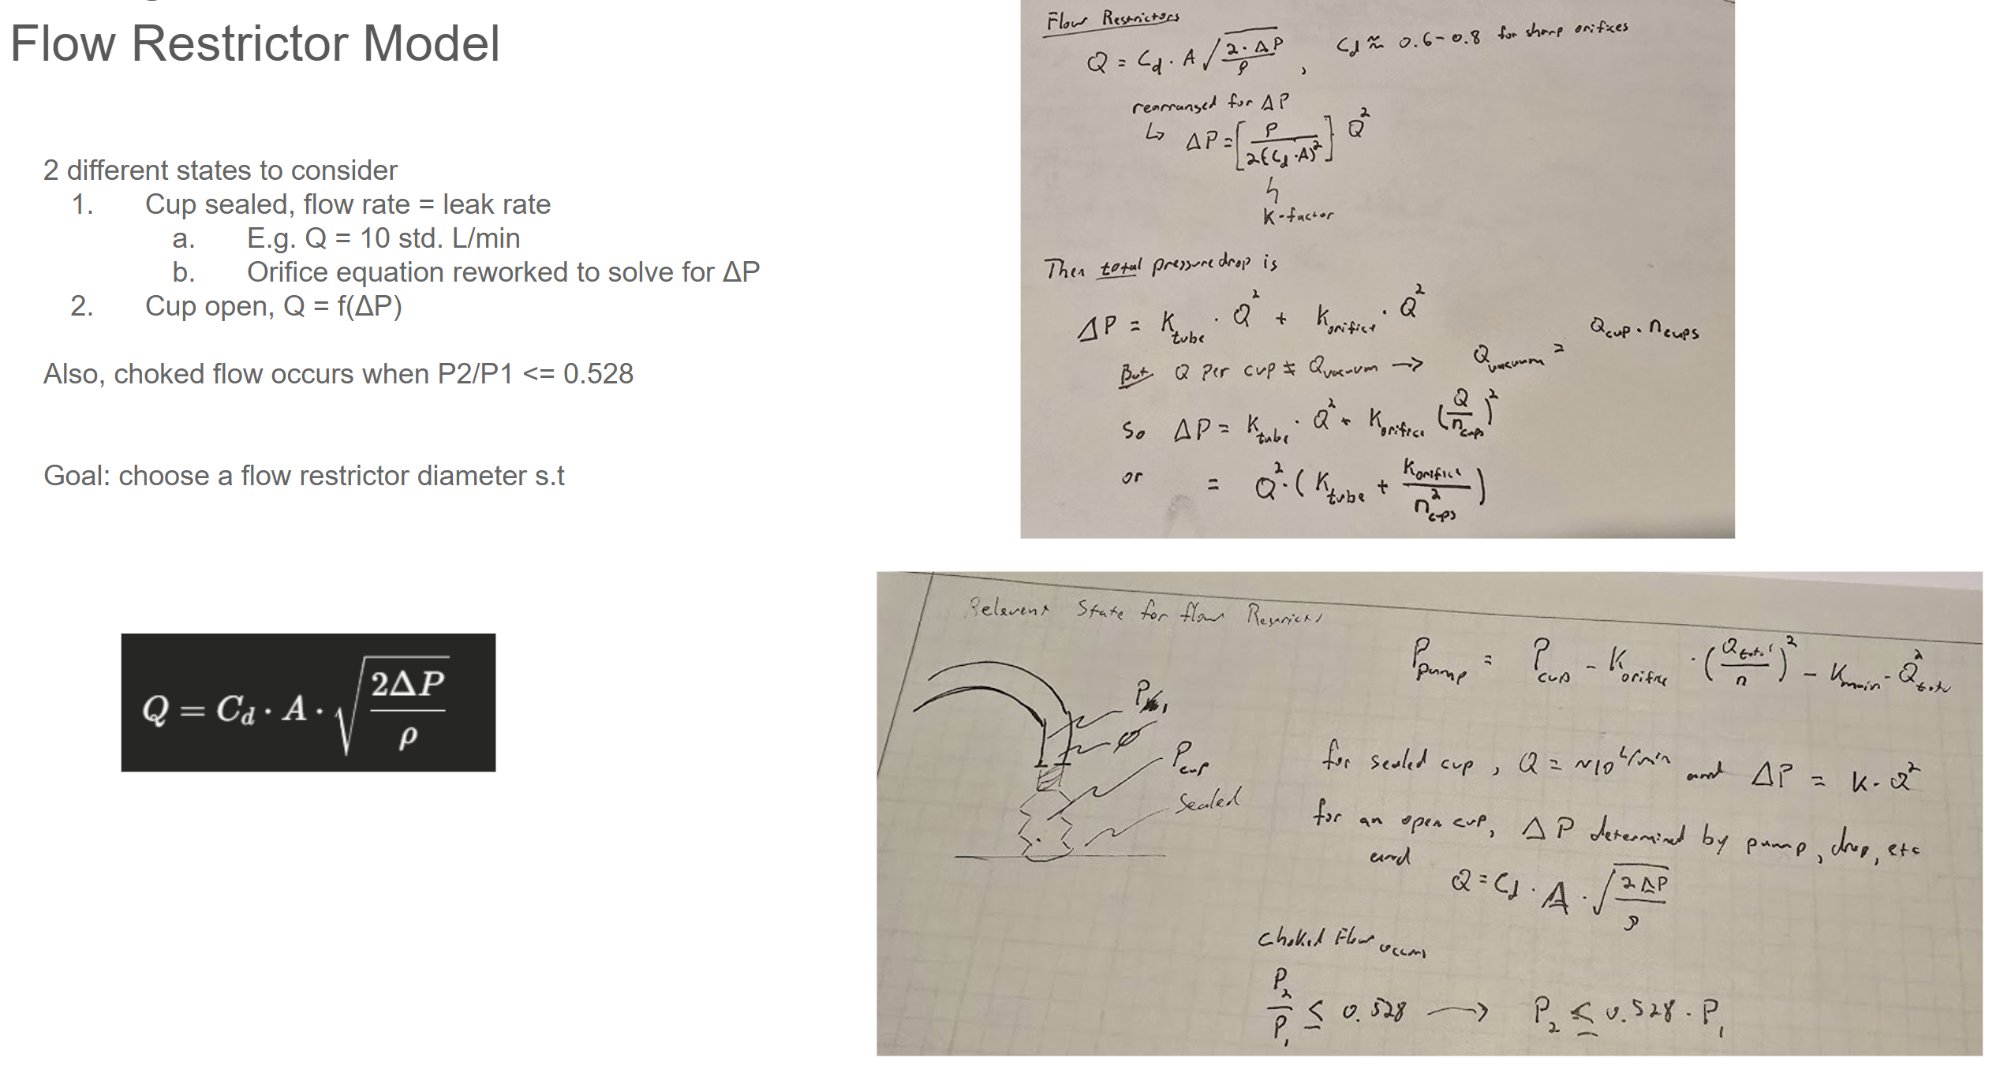 Flow Restrictor Model
2 different states to consider
1. Cup sealed, flow rate = leak rate
a. E.g. Q = 10 std. L/min
b. Orifice equation reworked to solve for ΔP
2. Cup open, Q = f(ΔP)
Also, choked flow occurs when P2/P1 <= 0.528
Goal: choose a flow restrictor diameter s.t
Q = C_d · A · √(2ΔP/ρ)
Flow Restrictors
Q = C_d · A √(2·ΔP/ρ) , C_d ≈ 0.6-0.8 for sharp orifices
rearranged for ΔP
↳ ΔP = [ρ/2(C_d·A)²] Q²
K-factor
Then total pressure drop is
ΔP = K_tube · Q² + K_orifice · Q²
But Q per cup ≠ Q_vacuum → Q_vacuum = Q_cup · n_cups
So ΔP = K_tube · Q² + K_orifice (Q/n_cups)²
or = Q² · (K_tube + K_orifice/n²_cups)
Relevent State for flow
P_pump = P_cup - K_orifice · (Q_total/n)² - K_main · Q²_total
P_1
φ
P_cup
Sealed
for sealed cup, Q = ~10 L/min and ΔP = K · Q²
for an open cup, ΔP determined by pump, drop, etc
and
Q = C_d · A · √(2ΔP/ρ)
Choked Flow occurs
P_2/P_1 ≤ 0.528 → P_2 ≤ 0.528 · P_1